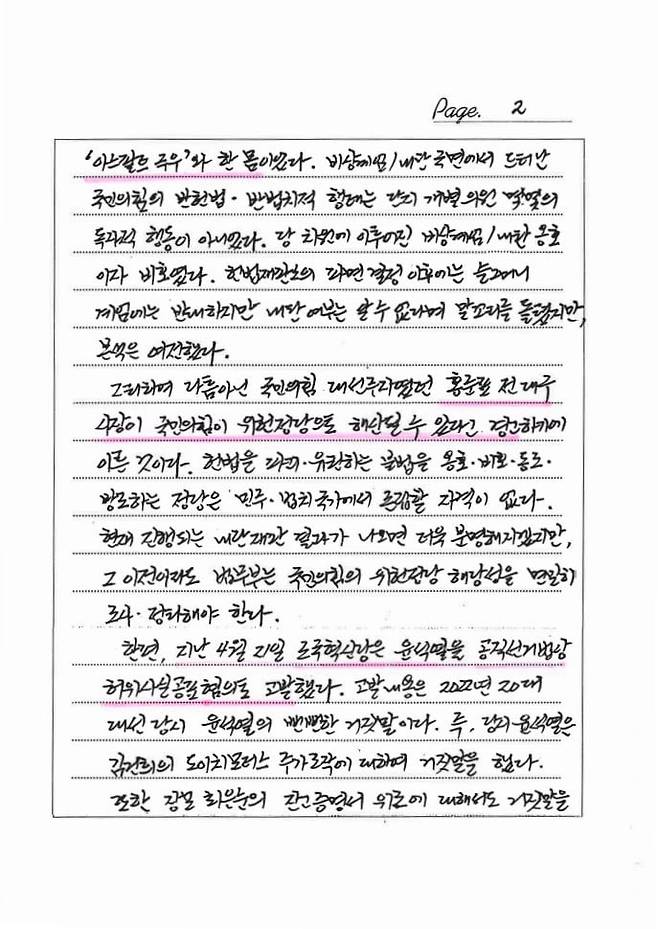 Page. 2
'아스팔트 극우'와 한 몸이었다. 비상계엄/내란 국면에서 드러난
국민의힘의 반헌법·반법치적 행태는 단지 개별 의원 몇몇의
독자적 행동이 아니었다. 당 차원에 이루어진 비상계엄/내란 옹호
이자 비호였다. 헌법재판소의 파면결정 이후에는 슬그머니
계엄에는 반대하지만 내란 여부는 알 수 없다며 말꼬리를 돌렸지만,
본색은 여전했다.
그리하여 다름아닌 국민의힘 대선주자였던 홍준표 전 대구
시장이 국민의힘이 위헌정당으로 해산될 수 있다고 경고하기에
이른 것이다. 헌법을 파괴·유린하는 불법을 옹호·비호·동조·
방조하는 정당은 민주·법치국가에서 존립할 자격이 없다.
현재 진행되는 내란재판 결과가 나오면 더욱 분명해지겠지만,
그 이전이라도 법무부는 국민의힘의 위헌정당 해당성을 면밀히
조사·평가해야 한다.
한편, 지난 4월 21일 조국혁신당은 윤석열을 공직선거법상
허위사실공표 혐의로 고발했다. 고발내용은 2022년 20대
대선 당시 윤석열의 뻔뻔한 거짓말이다. 즉, 당시 윤석열은
김건희의 도이치모터스 주가조작에 대하여 거짓말을 했다.
또한 장모 최은순의 잔고증명서 위조에 대해서도 거짓말을